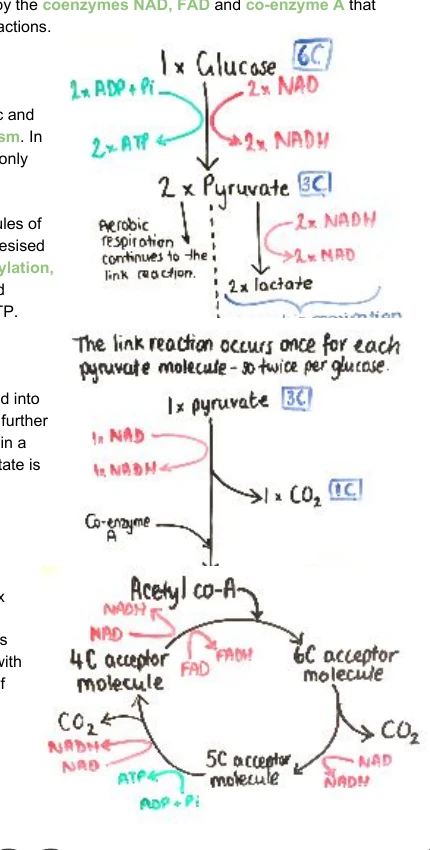 by the coenzymes NAD, FAD and co-enzyme A that
actions.
1 x Glucose 6C
2x ADP + Pi
2x NAD
2x ATP
2x NADH
c and
sm. In
only
2 x Pyruvate 3C
ules of
esised
ylation,
d
TP.
Aerobic
respiration
continues to the
link reaction.
2x NADH
2x NAD
2x lactate
The link reaction occurs once for each
pyruvate molecule - so twice per glucose.
d into
further
in a
tate is
1 x pyruvate 3C
1x NAD
1x NADH
1 x CO2 1C
Co-enzyme
A
Acetyl co-A
x
s
with
f
NADH
NAD
FAD
FADH
4C acceptor
molecule
6C acceptor
molecule
CO2
CO2
NADH
NAD
5C acceptor
molecule
NAD
NADH
ATP
ADP + Pi